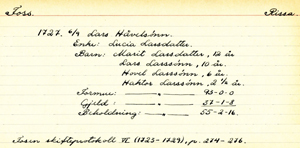 Foss. Rissa.
1727. 6/9 Lars Håvelsønn.
Enke: Lucia Larsdatter.
Barn: Marit Larsdatter, 12 år.
Lars Larssønn, 10 år.
Hovel Larssønn, 6 år.
Haktor Larssønn, 2 ½ år.
Formue: — . — 93-0-0
Gjeld: — . — 37-1-8
Beholdning: — . — 55-2-16.
Fosen skifteprotokoll VI (1723-1729), p. 274-276.